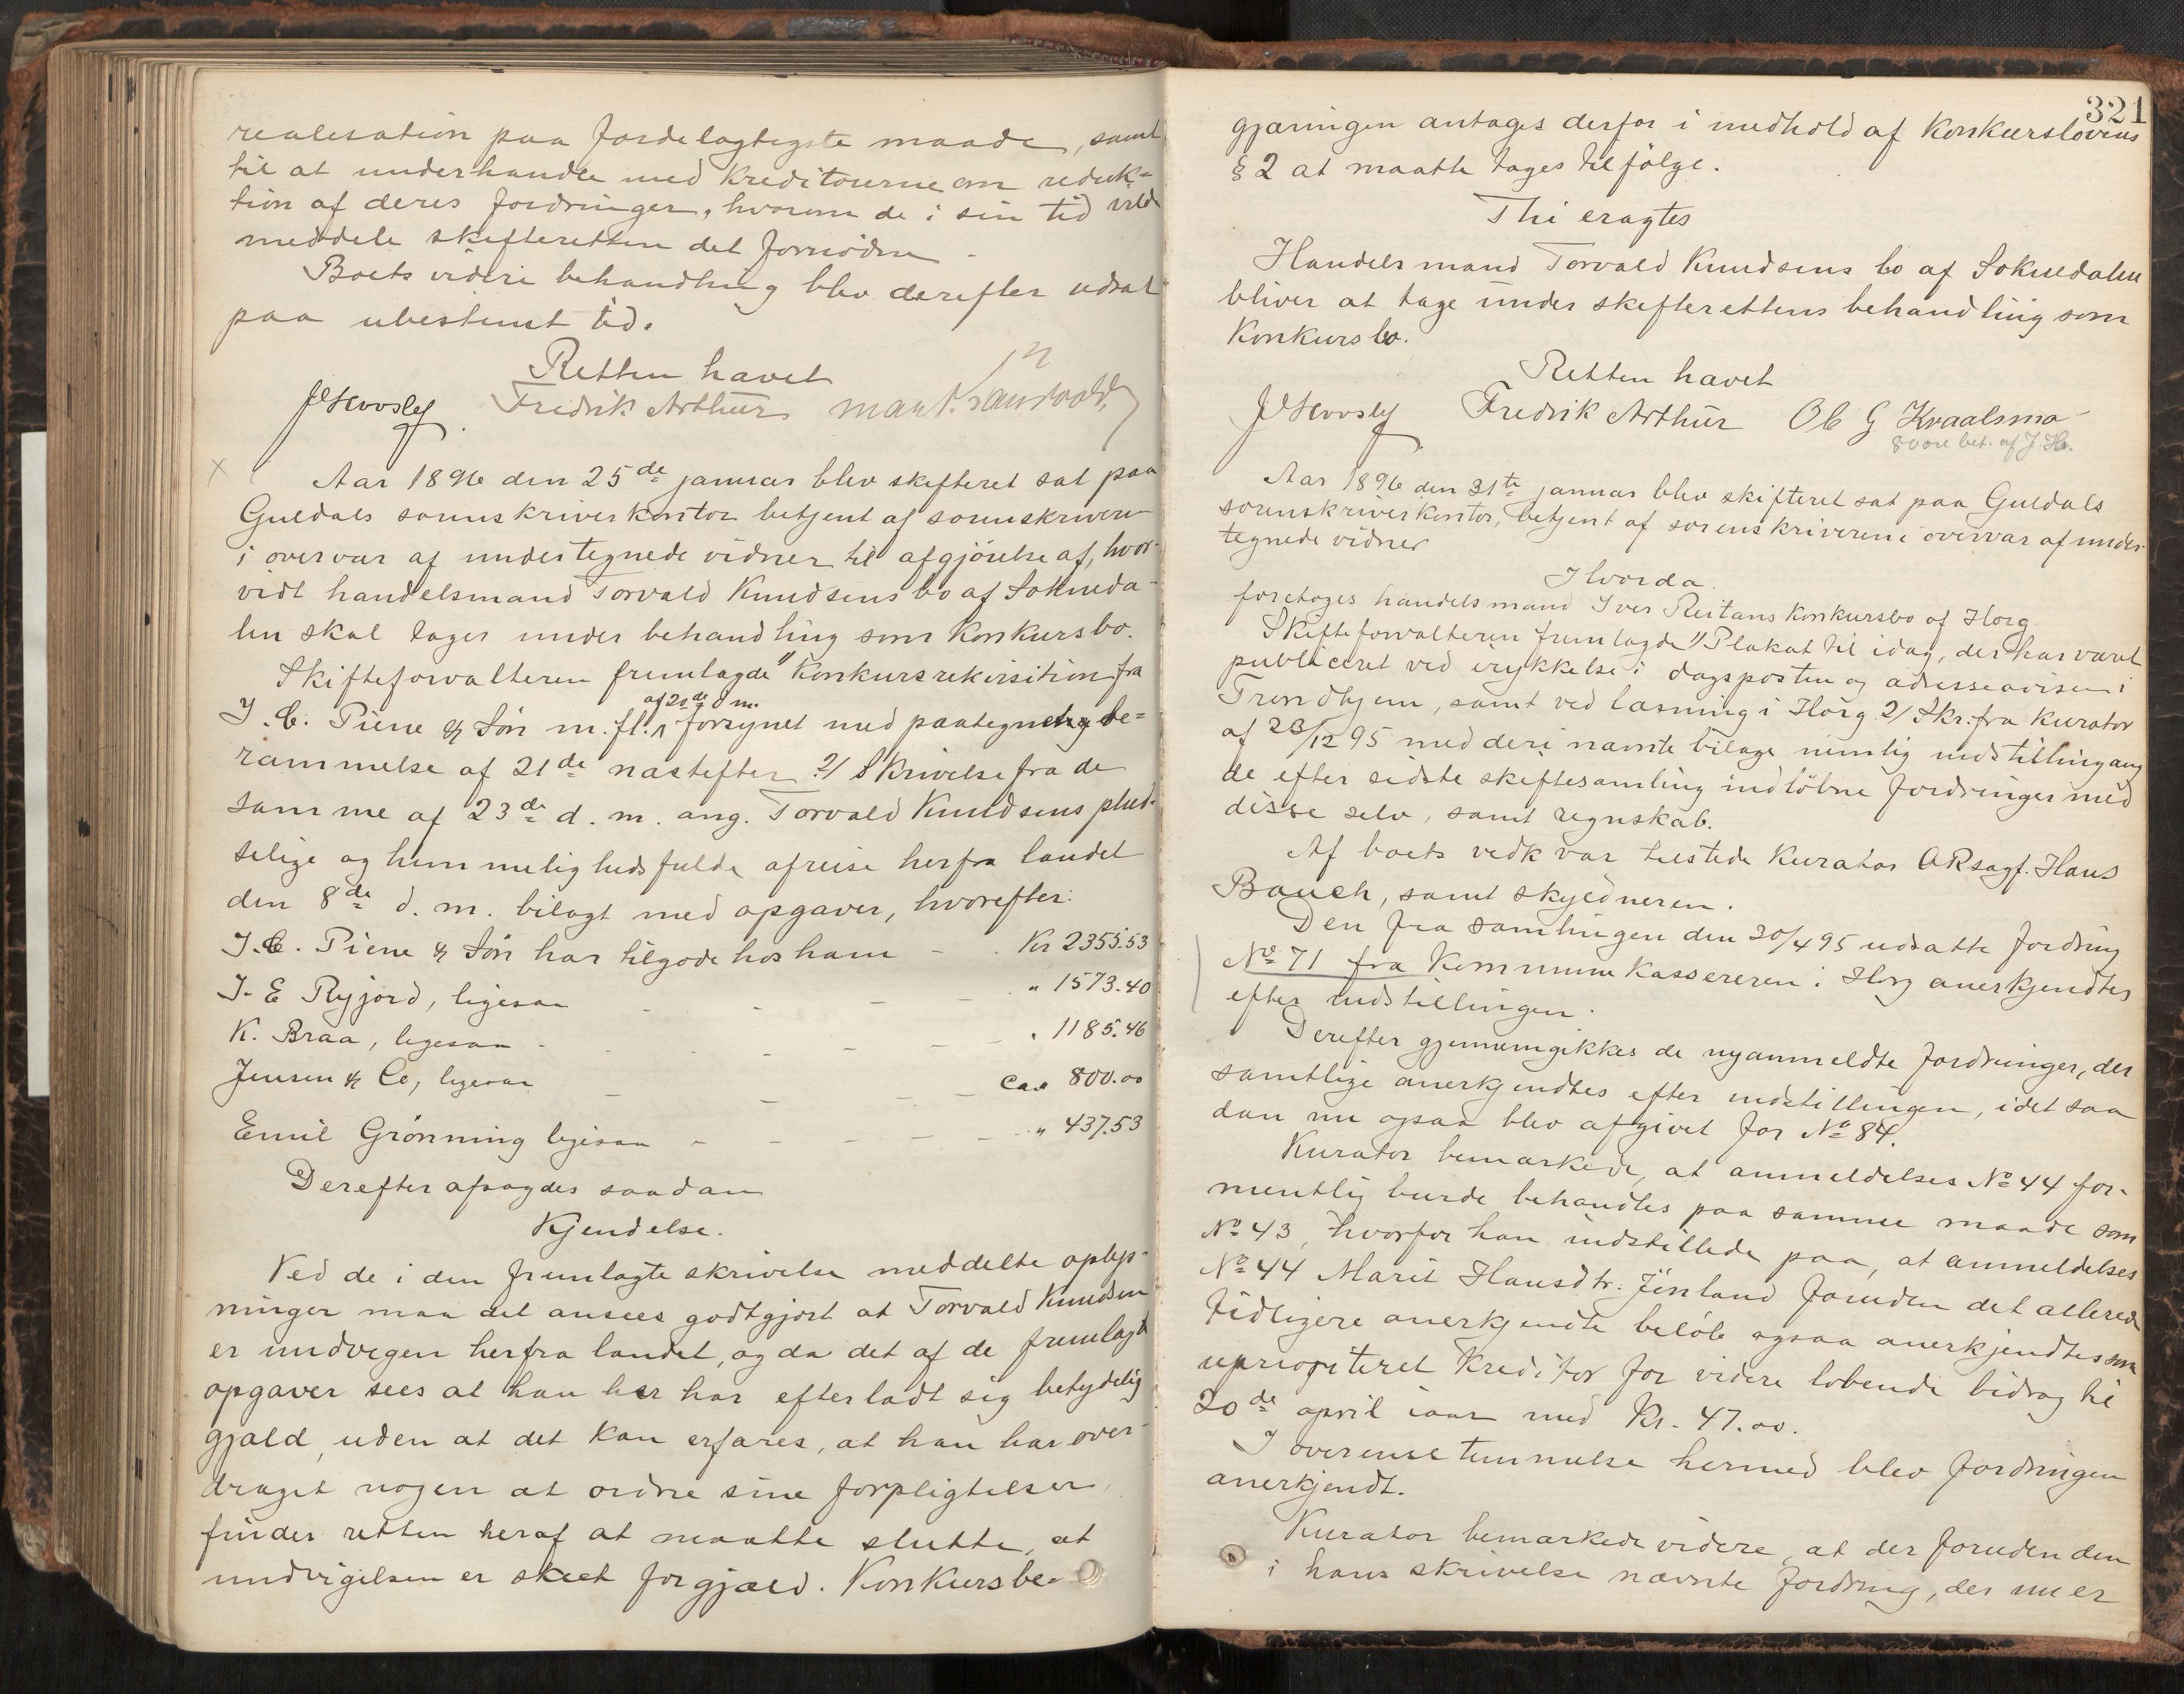 realisation paa fordelagtigste maade, samt
til at underhandle med kreditorerne om reduk=
tion af deres fordringer, hvorom de i sin tid vilde
meddele skifteretten det fornødne.
Boets videre behandling blev derefter udsat
paa ubestemt tid.
Retten hævet
Fredrik Arthur
Aar 1896 den 25de januar blev skifteret sat paa
Guldals sorenskriverkontor betjent af sorenskriveren
i overvær af undertegnede vidner til afgjörelse af, hvor-
vidt handelsmand Torvald Knudsens bo af Sokneda-
len skal tages under behandling som konkursbo.
Skifteforvalteren fremlagde 1/ Konkursrekvisition fra
af 20de d.m.
I. C. Piene & Sön m. fl. forsynet med paategnet be=
rammelse af 21de næstefter 2/ Skrivelse fra de
samme af 23de d. m. ang. Torvald Knudsens plud-
selige og hemmelighedsfulde afreise herfra landet
den 8de d. m. bilagt med opgaver, hvorefter:
I. C. Piene & Sön har tilgode hos ham - - Kr 2355.53
I. E Ryjord, ligesaa - - - - " 1573.40
K. Braa, ligesaa - - - - " 1185.46
Jensen & Co, ligesaa - - - - ca. 800.00
Emil Grönning ligesaa - - - - " 437.53
Derefter afsagdes saadan
Kjendelse.
Ved de i den fremlagte skrivelse meddelte oplys-
ninger maa det ansees godtgjort at Torvald Knudsen
er undvegen herfra landet, og da det af de fremlagte
opgaver sees at han her har efterladt sig betydelig
gjæld, uden at det kan erfares, at han har over-
draget nogen at ordne sine forpligtelser,
finder retten heraf at maatte slutte, at
undvigelsen er skeet for gjæld. Konkursbe-
321
gjæringen antages derfor i medhold af Konkurslovens
§ 2 at maatte tages tilfölge.
Thi eragtes
Handelsmand Torvald Knudsens bo af Soknedalen
bliver at tage under skifterettens behandling som
Konkursbo.
Retten hævet
Fredrik Arthur Ole G Kraalsmo
80 öre bet. af J. H.
Aar 1896 den 31te januar blev skifteret sat paa Guldals
sorenskriverkontor, betjent af sorenskriveren i overvær af under-
tegnede vidner
Hvorda
foretoges handelsmand Iver Reitans konkursbo af Horg.
Skifteforvalteren fremlagde 1/ Plakat til idag, der har været
publiceret ved indrykkelse i dagsposten og adresseavisen i
Trondhjem, samt ved læsning i Horg 2/ Skr. fra kurator
af 23/12 95 med deri nævnte bilage nemlig indstilling ang
de efter sidste skiftesamling indlöbne fordringer med
disse selv, samt regnskab.
Af boets vedk var tilstede kurator ORsagf. Hans
Bauck, samt skyldneren.
Den fra samlingen den 20/4 95 udsatte fordring
No 71 fra Kommunekassereren i Horg anerkjendtes
efter indstillingen.
Derefter gjennemgikkes de nyanmeldte fordringer, der
samtlige anerkjendtes efter indstillingen, idet saa
dan nu ogsaa blev afgivet for No 84.
Kurator bemærkede, at anmeldelses No 44 for-
mentlig burde behandles paa samme maade som
No 43, hvorfor han indstillede paa, at anmeldelses
No 44 Marit Hansdtr. foruden det allerede
tidligere anerkjendte belöb ogsaa anerkjendtes som
uprioriteret kreditor for videre löbende bidrag til
20de april iaar med Kr. 47.00.
I overensstemmelse hermed blev fordringen
anerkjendt.
Kurator bemærkede videre, at der foruden den
i hans skrivelse nævnte fordring, der nu er